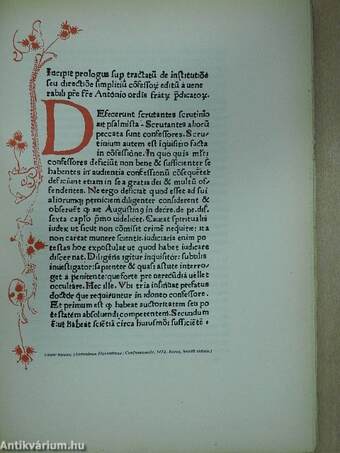 Incipit prologus sup tractatū de institutiõe
seu directiõe simplitiū cōfessoꝝ editū a uene
rabili pr̄e fr̄e Antōnio ordīs fratꝝ p̄dicatoꝝ.
DEfecerunt scrutantes scrutinio
ait psalmista. Scrutantes alioꝝ
peccata sunt confessores. Scru
tinium autem est īquisitio facta
in cōfessiōne. In quo quis
confessores deficiūt non bene & sufficienter se
habentes in audientia confessionū cōsequēter
deficiunt etiam in se a gratia dei & multū of
fendentes. Ne ergo deficiat quod esset ad sui
aliorumqꝫ perniciem diligenter considerent &
obseruēt ꝙ ait Augustinꝰ in decre. de pe. dis.
sexta caplo pʳmo uidelicet. Caueat spiritualis
iudex ut sicut non cōmisit crimē nequitie: ita
non careat munere scientie. iudiciaria enim po
testas hoc expostulat ut quod habet iudicare
discernat. Diligens igitur inquisitor: subtilis
inuestigator: sapienter & quasi astute interro
get a penitente: quod forte pre uerecundia uellet
occultare. Hec ille. Ubi tria insinuat prefatus
doctor que requiruntur in idoneo confessore.
Et primum est ꝙ habeat auctoritatem seu po
testatem absoluendi competentem. Secundum
est ꝙ habeat sciētiā circa huiusmodi sufficiētē.
Antikvárium.hu